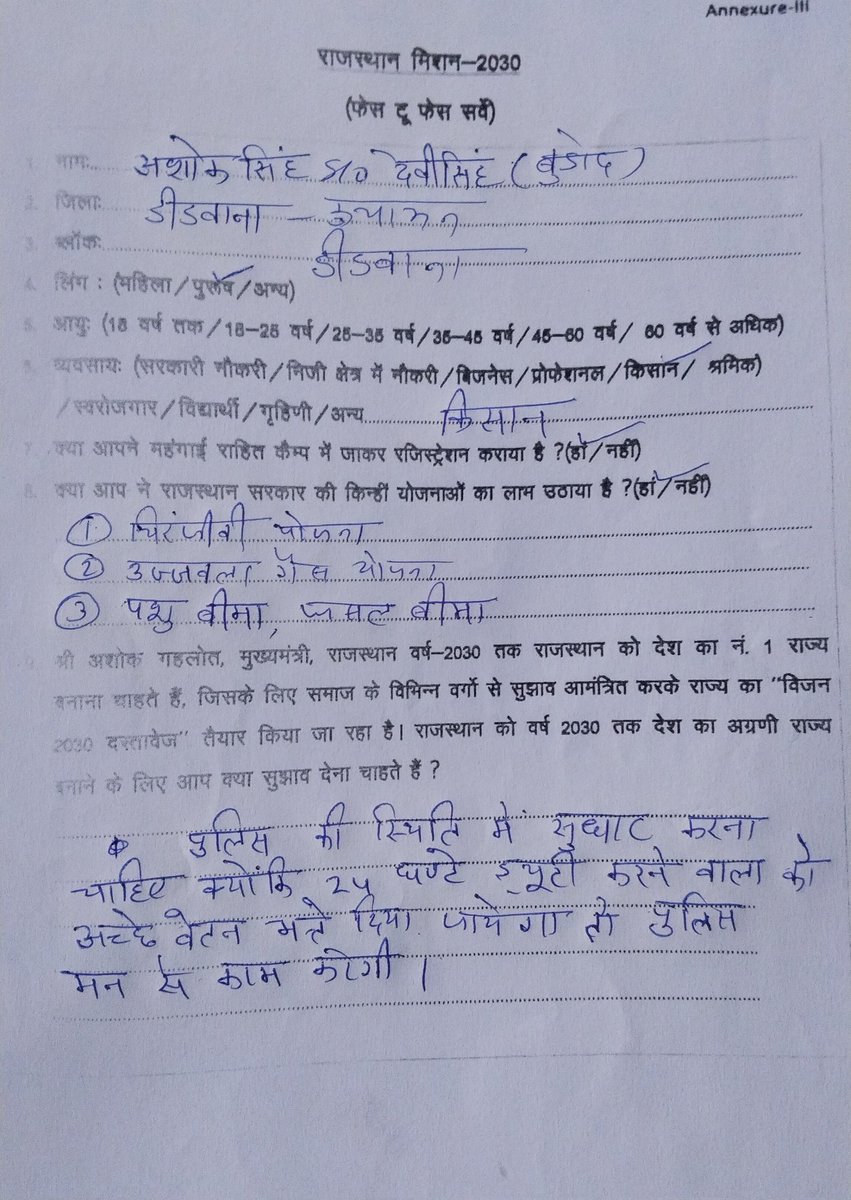 Annexure-III
राजस्थान मिशन–2030
(फेस टू फेस सर्वे)
1. नामः अशोक सिंह S/o देवीसिंह (बुडोद)
2. जिलाः डीडवाना – कुचामन
3. ब्लॉकः डीडवाना
4. लिंग : (महिला/पुरूष/अन्य)
5. आयुः (18 वर्ष तक/18–25 वर्ष/25–35 वर्ष/35–45 वर्ष/45–60 वर्ष/ 60 वर्ष से अधिक)
6. व्यवसायः (सरकारी नौकरी/निजी क्षेत्र में नौकरी/बिजनेस/प्रोफेशनल/किसान/ श्रमिक)
/स्वरोजगार/विद्यार्थी/गृहिणी/अन्य किसान
7. क्या आपने महंगाई राहित कैम्प में जाकर रजिस्ट्रेशन कराया है ?(हाँ/नहीं)
8. क्या आप ने राजस्थान सरकार की किन्हीं योजनाओं का लाभ उठाया है ?(हां/नहीं)
① चिरंजीवी योजना
② उज्जवला गैस योजना
③ पशु बीमा, फसल बीमा
9. श्री अशोक गहलोत, मुख्यमंत्री, राजस्थान वर्ष–2030 तक राजस्थान को देश का नं. 1 राज्य
बनाना चाहते हैं, जिसके लिए समाज के विभिन्न वर्गो से सुझाव आमंत्रित करके राज्य का "विजन
2030 दस्तावेज" तैयार किया जा रहा है। राजस्थान को वर्ष 2030 तक देश का अग्रणी राज्य
बनाने के लिए आप क्या सुझाव देना चाहते हैं ?
पुलिस की स्थिति में सुधार करना
चाहिए क्योंकि 24 घण्टे ड्यूटी करने वाला को
अच्छे वेतन भत्ते दिया जायेगा तो पुलिस
मन से काम करेगी।